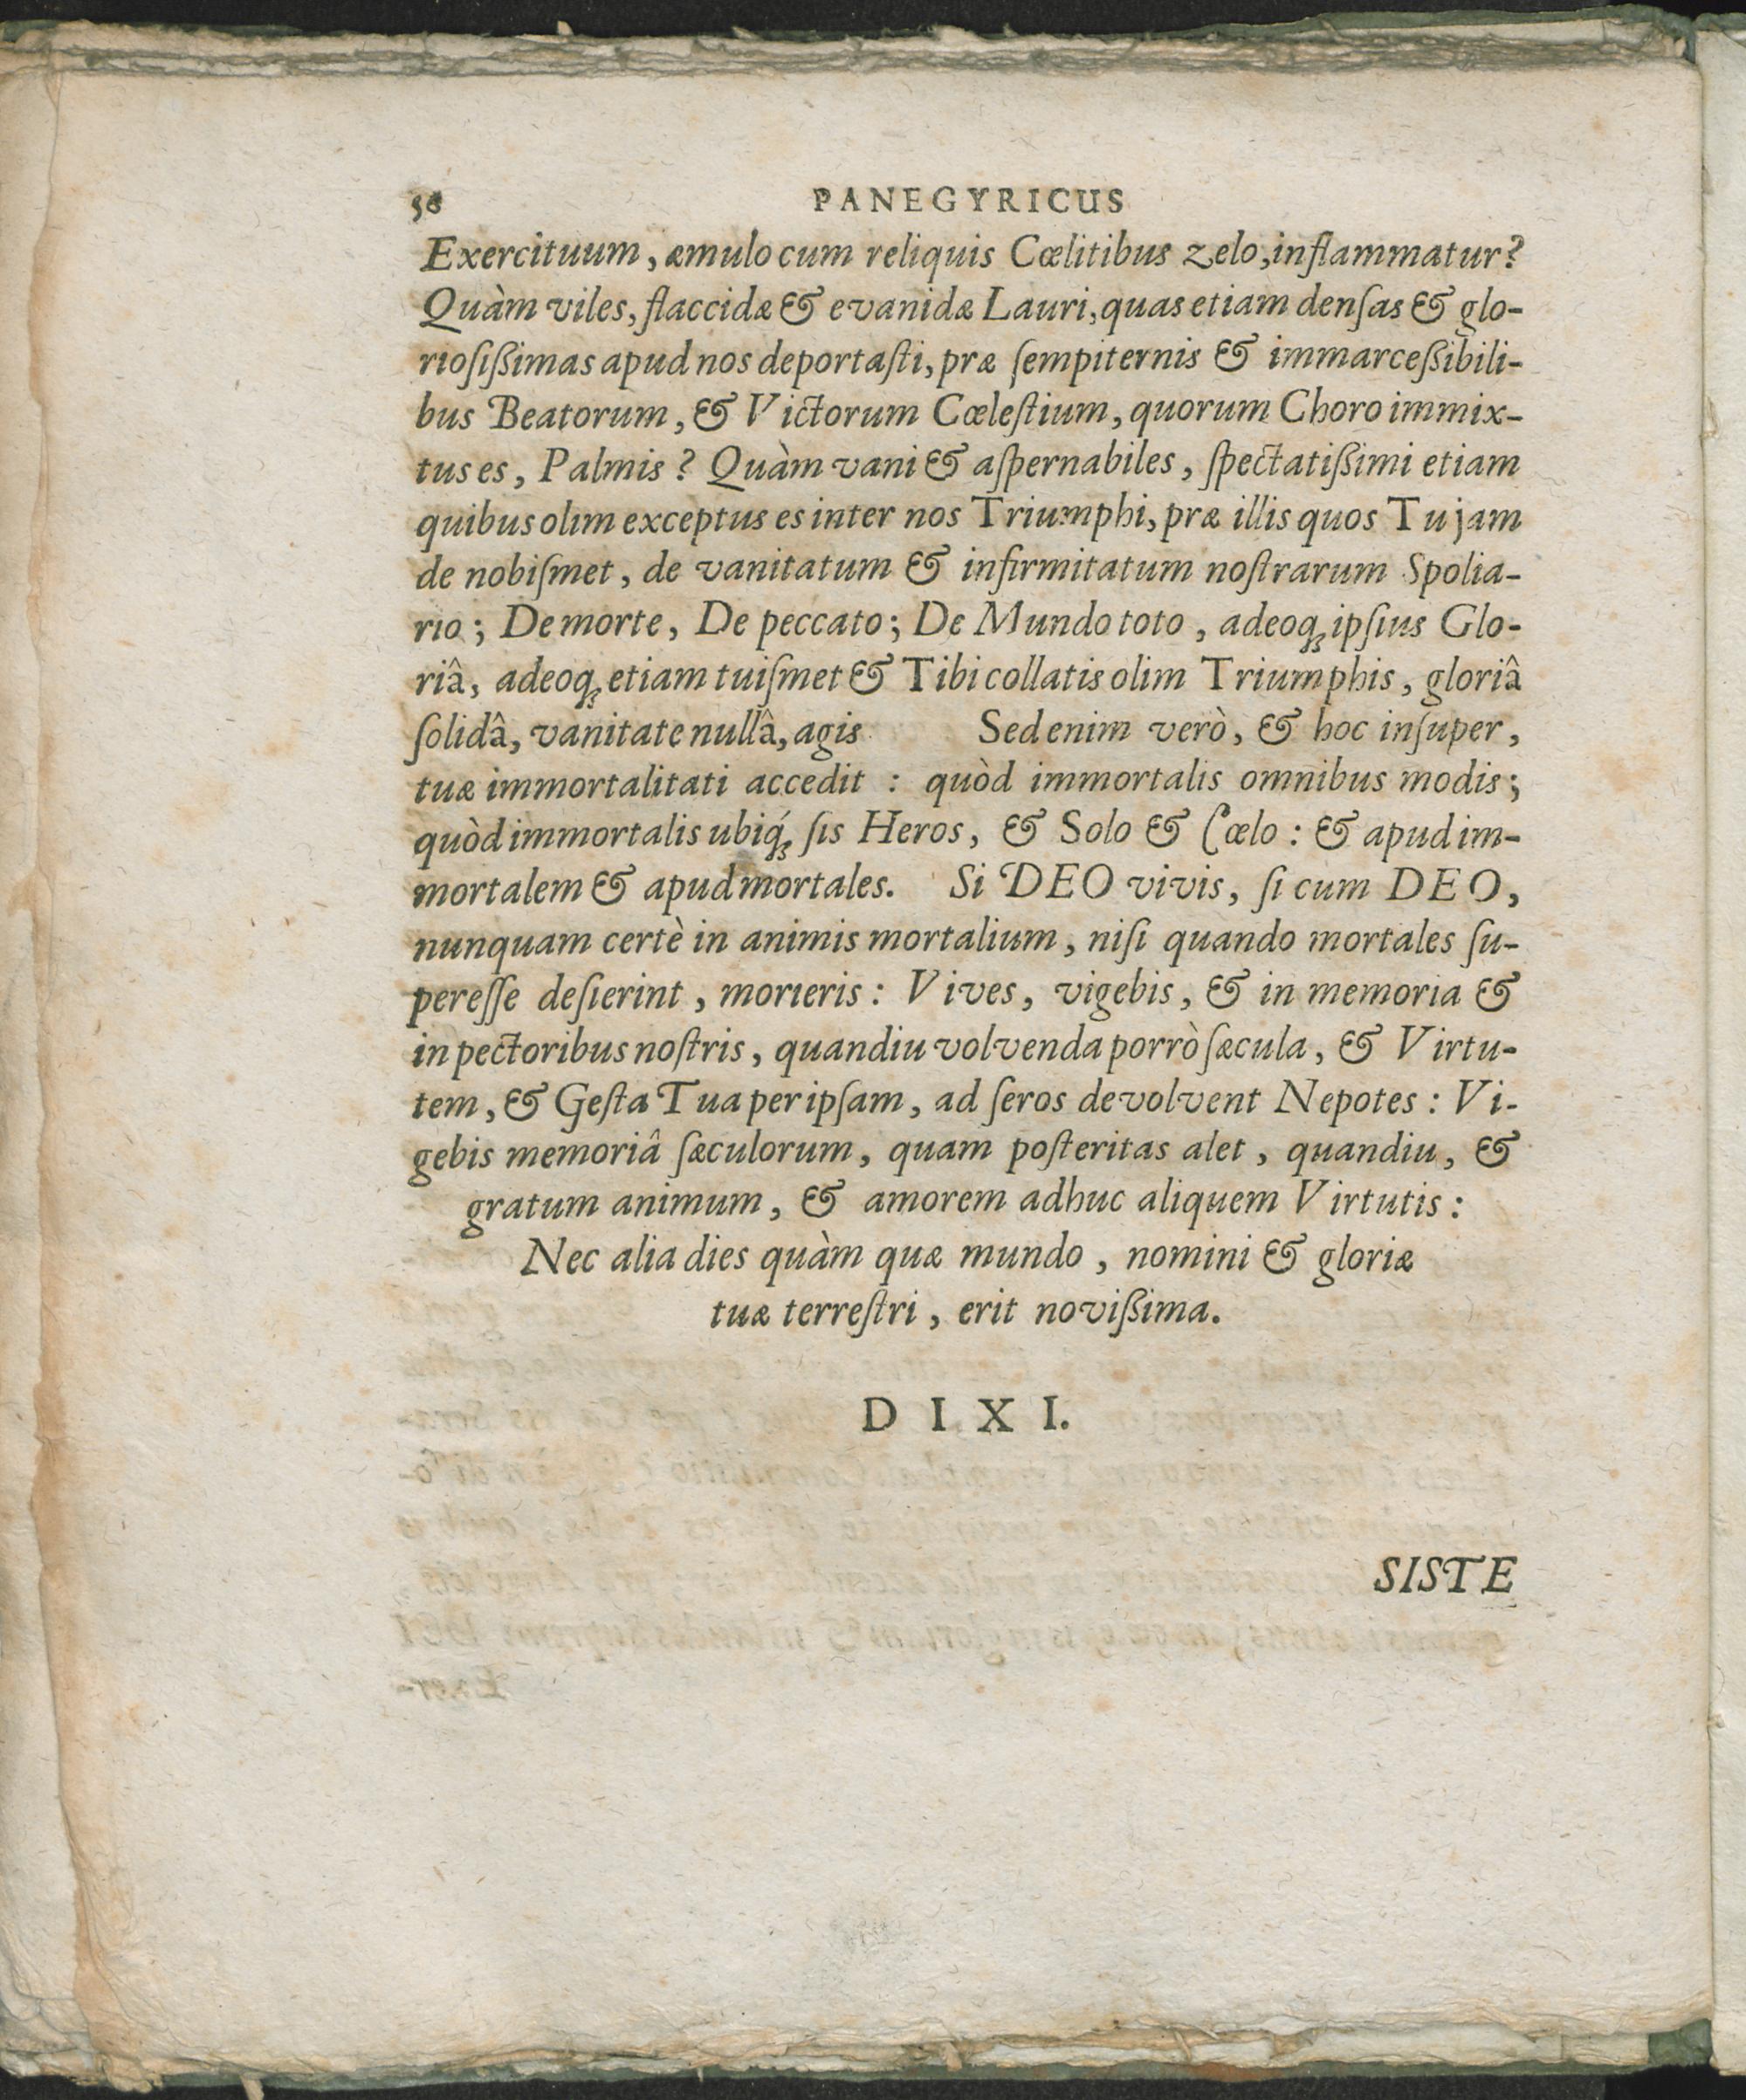 PANEGYRICUS
Exercituum, æmulo cum reliquis Cœlitibus zelo, inflammatur?
Quàm viles, flaccidæ & evanidæ Lauri, quas etiam denſas & glo-
rioſiſſimas apud nos deportaſti, præ ſempiternis & immarceſſibili-
bus Beatorum, & Victorum Cœleſtium, quorum Choro immix-
tus es, Palmis? Quàm vani & aſpernabiles, ſpectatiſſimi etiam
quibus olim exceptus es inter nos Triumphi, præ illis quos Tu jam
de nobiſmet, de vanitatum & infirmitatum noſtrarum Spolia-
rio; De morte, De peccato; De Mundo toto, adeoq; ipſius Glo-
riâ, adeoq; etiam tuiſmet & Tibi collatis olim Triumphis, gloriâ
ſolidâ, vanitate nullâ, agis. Sed enim verò, & hoc inſuper,
tuæ immortalitati accedit : quòd immortalis omnibus modis;
quòd immortalis ubiq́; ſis Heros, & Solo & Cœlo : & apud im-
mortalem & apud mortales. Si DEO vivis, ſi cum DEO,
nunquam certè in animis mortalium, niſi quando mortales ſu-
pereſſe deſierint, morieris : Vives, vigebis, & in memoria &
in pectoribus noſtris, quandiu volvenda porrò ſæcula, & Virtu-
tem, & Geſta Tua per ipſam, ad ſeros devolvent Nepotes : Vi-
gebis memoriâ ſæculorum, quam poſteritas alet, quandiu, &
gratum animum, & amorem adhuc aliquem Virtutis :
Nec alia dies quàm quæ mundo, nomini & gloriæ
tuæ terreſtri, erit noviſſima.
DIXI.
SISTE